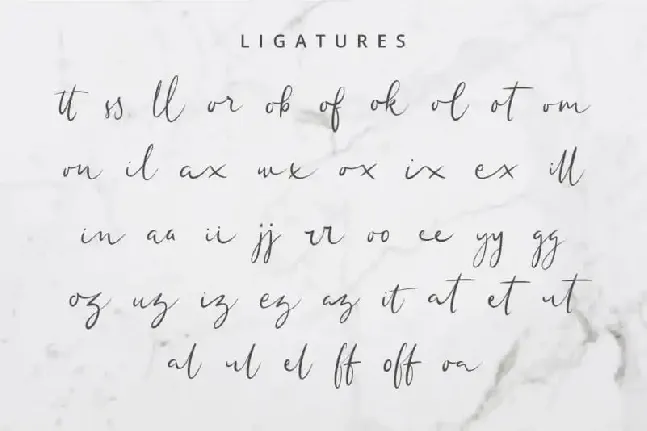 LIGATURES
tt ss ll or ob of ok ol ot om
on il ax ux ox ix ex ill
in aa ii jj rr oo ee yy gg
oz uz iz ez az it at et ut
al ul el ff off oa